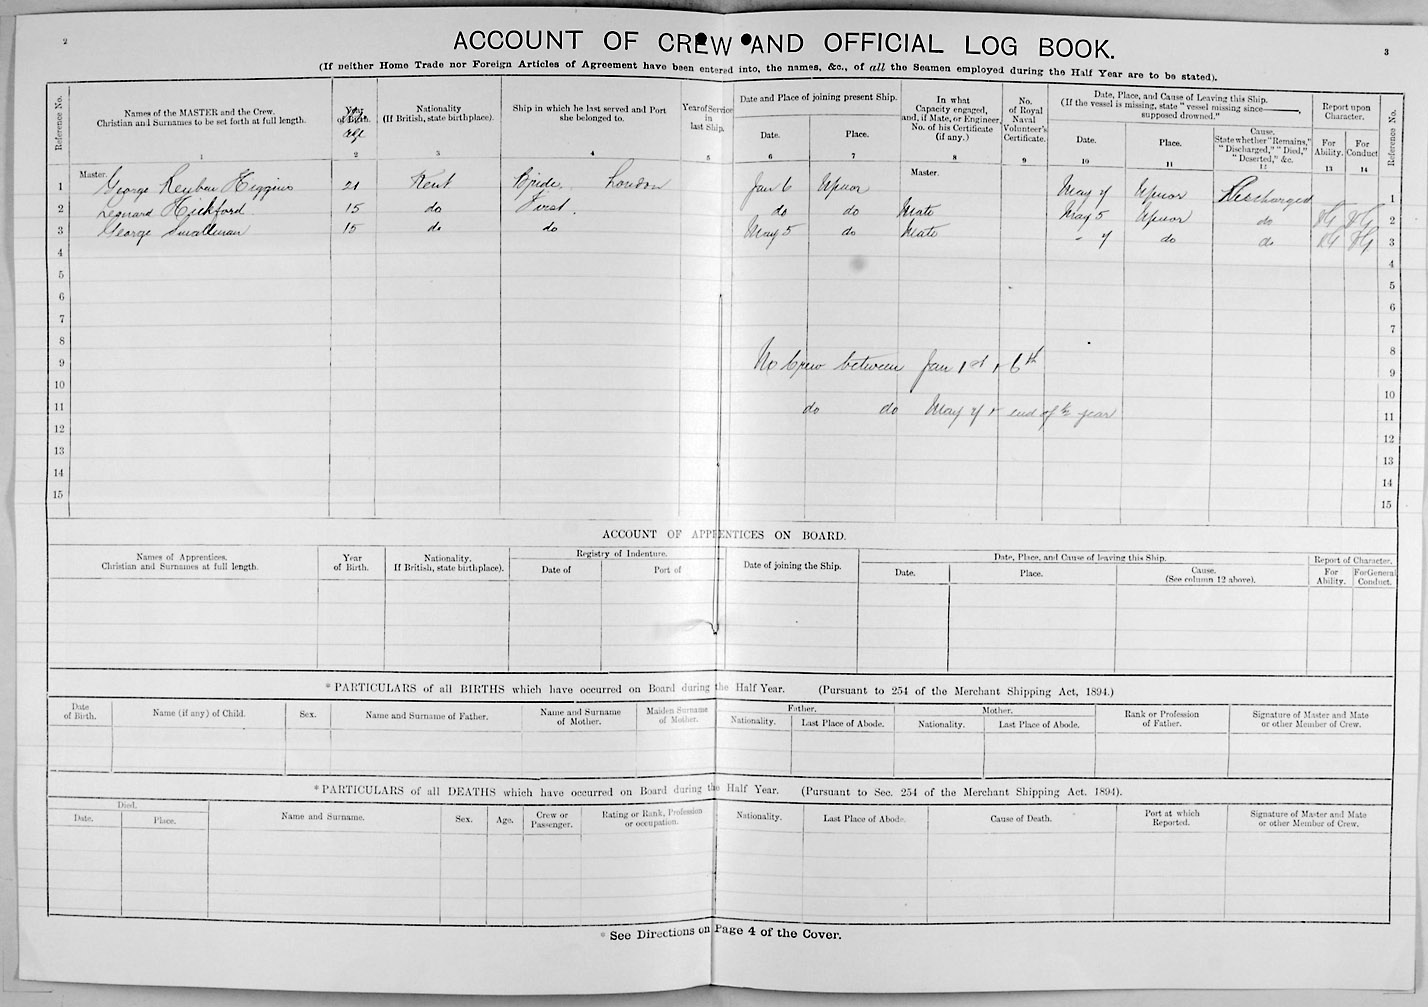 2
ACCOUNT OF CREW AND OFFICIAL LOG BOOK.
3
(If neither Home Trade nor Foreign Articles of Agreement have been entered into, the names, &c., of all the Seamen employed during the Half Year are to be stated).
Reference No.
Names of the MASTER and the Crew.
Christian and Surnames to be set forth at full length.
1
Year
of Birth.
age
2
Nationality
(If British, state birthplace).
3
Ship in which he last served and Port
she belonged to.
4
Year of Service
in
last Ship.
5
Date and Place of joining present Ship.
Date.
6
Place.
7
In what
Capacity engaged,
and, if Mate, or Engineer,
No. of his Certificate
(if any.)
8
No.
of Royal
Naval
Volunteer's
Certificate.
9
Date, Place, and Cause of Leaving this Ship.
(If the vessel is missing, state "vessel missing since———,
supposed drowned."
Date.
10
Place.
11
Cause.
State whether "Remains,"
"Discharged," "Died,"
"Deserted," &c.
12
Report upon
Character.
For
Ability.
13
For
Conduct
14
Reference No.
Master.
Master.
1 George Reuben Higgins 21 Kent Bride, London Jan 6 Upnor May 7 Upnor Discharged 1
2 Leonard Hickford 15 do First. do do Mate May 5 Upnor do VG VG 2
3 George Smallman 15 do do May 5 do Mate " 7 do do VG VG 3
4 4
5 5
6 6
7 7
8 8
No Crew between Jan 1st & 6th
9 9
10 10
do do May 7 & end of the year
11 11
12 12
13 13
14 14
15 15
ACCOUNT OF APPRENTICES ON BOARD.
Names of Apprentices.
Christian and Surnames at full length.
Year
of Birth.
Nationality.
If British, state birthplace).
Registry of Indenture.
Date of
Port of
Date of joining the Ship.
Date, Place, and Cause of leaving this Ship.
Date.
Place.
Cause.
(See column 12 above).
Report of Character.
For
Ability.
For General
Conduct.
*PARTICULARS of all BIRTHS which have occurred on Board during the Half Year. (Pursuant to 254 of the Merchant Shipping Act, 1894.)
Date
of Birth.
Name (if any) of Child.
Sex.
Name and Surname of Father.
Name and Surname
of Mother.
Maiden Surname
of Mother.
Father.
Nationality.
Last Place of Abode.
Mother.
Nationality.
Last Place of Abode.
Rank or Profession
of Father.
Signature of Master and Mate
or other Member of Crew.
*PARTICULARS of all DEATHS which have occurred on Board during the Half Year. (Pursuant to Sec. 254 of the Merchant Shipping Act. 1894).
Died.
Date.
Place.
Name and Surname.
Sex.
Age.
Crew or
Passenger.
Rating or Rank, Profession
or occupation.
Nationality.
Last Place of Abode.
Cause of Death.
Port at which
Reported.
Signature of Master and Mate
or other Member of Crew.
* See Directions on Page 4 of the Cover.